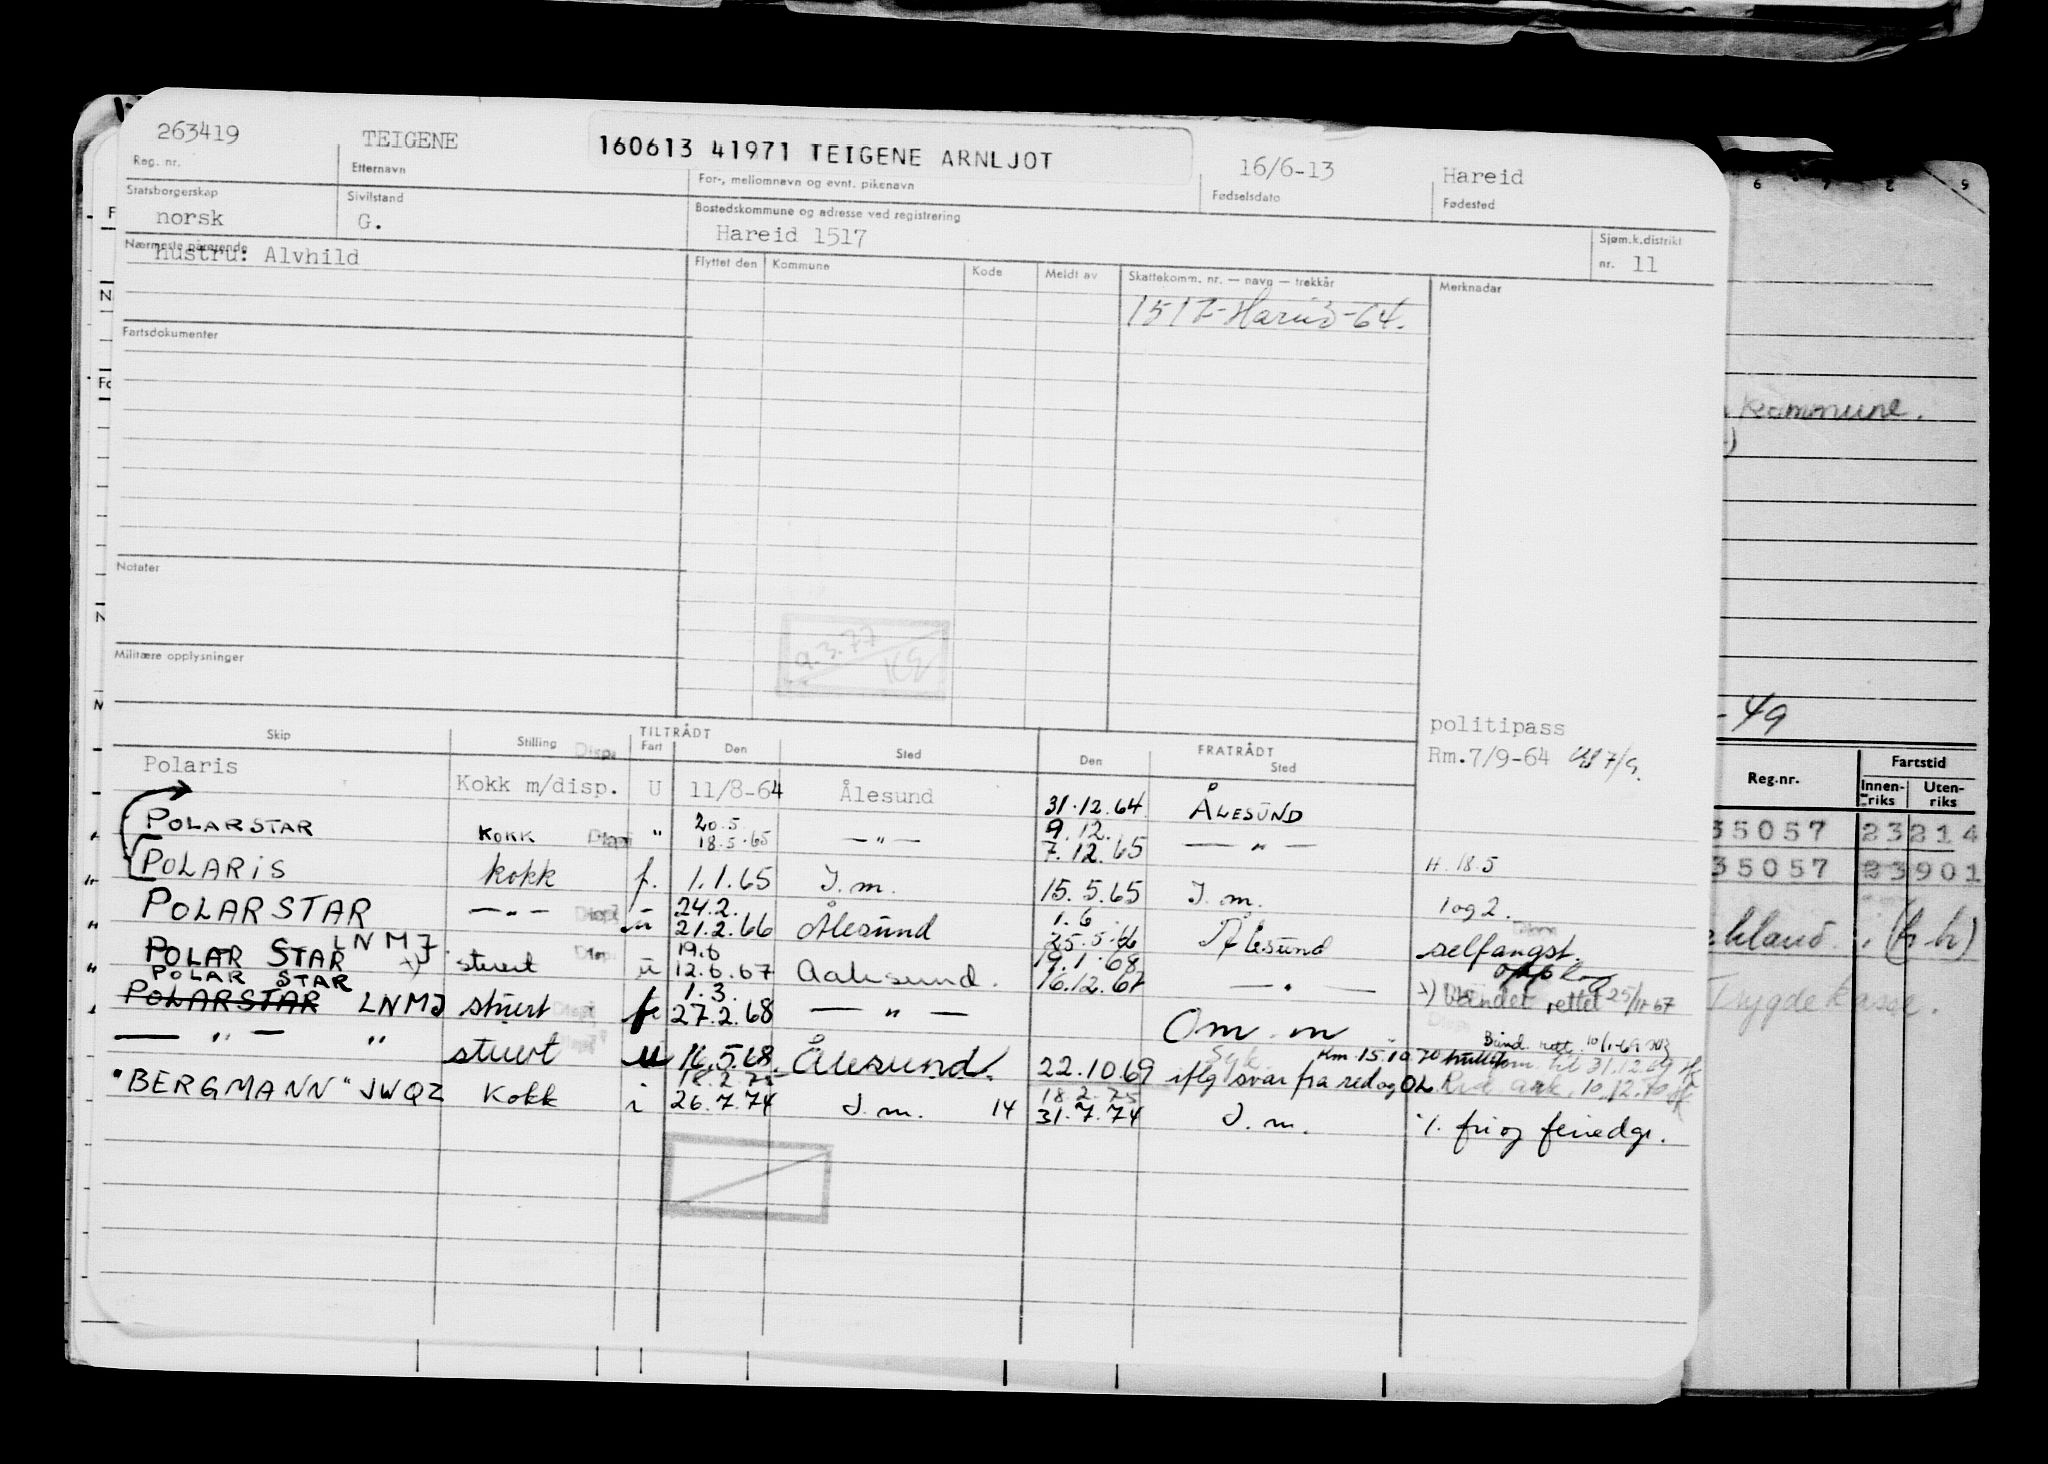 263419 TEIGENE 160613 41971 TEIGENE ARNLJOT 16/6-13 Hareid
Reg. nr. Etternavn For-, mellomnavn og evnt. pikenavn Fødselsdato Fødested
Statsborgerskap Sivilstand Bostedskommune og adresse ved registrering
norsk G. Hareid 1517 Sjøm.k.distrikt
nr. 11
Nærmeste pårørende
hustru: Alvhild
Flyttet den Kommune Kode Meldt av Skattekomm. nr. — navn — trekkår Merknadar
1517-Hareid-64.
Fartsdokumenter
Notater
a.3.77
Militære opplysninger
TILTRÅDT FRATRÅDT
Skip Stilling Fart Den Sted Den Sted
politipass
Rm.7/9-64
Polaris Kokk m/disp. U 11/8-64 Ålesund 31.12.64 ÅLESUND
POLARSTAR KOKK " 20.5. 18.5.65 — " — 9.12. 7.12.65 — " —
H. 18.5
POLARIS kokk f. 1.1.65 I.m. 15.5.65 I.m. 1 og 2.
POLARSTAR — " — 24.2. 21.2.66 Ålesund 1.6. 25.5.66 Ålesund selfangst.
POLAR STAR LNMJ stuert u 19.6 12.6.67 Aalesund. 19.1.68 16.12.67 — " — opplag
rettet
POLAR STAR
POLARSTAR LNMJ stuert 1.3. 27.2.68 — " — Om. m
— " — " stuert u 16.5.68 Ålesund. 22.10.69 iflg svar fra red og
Rm. 15.10.70
til 31.12.69
10.12.70
"BERGMANN" JWQZ Kokk i 18.2.75 26.7.74 I.m. 14 18.2.75 31.7.74 I.m. % fri og feriedgr.
6 7 8 9
kommune.
-49
Reg.nr. Fartstid
Innen-riks Uten-riks
35057 23 214
35057 23 901
(h h)
Trygdekasse.